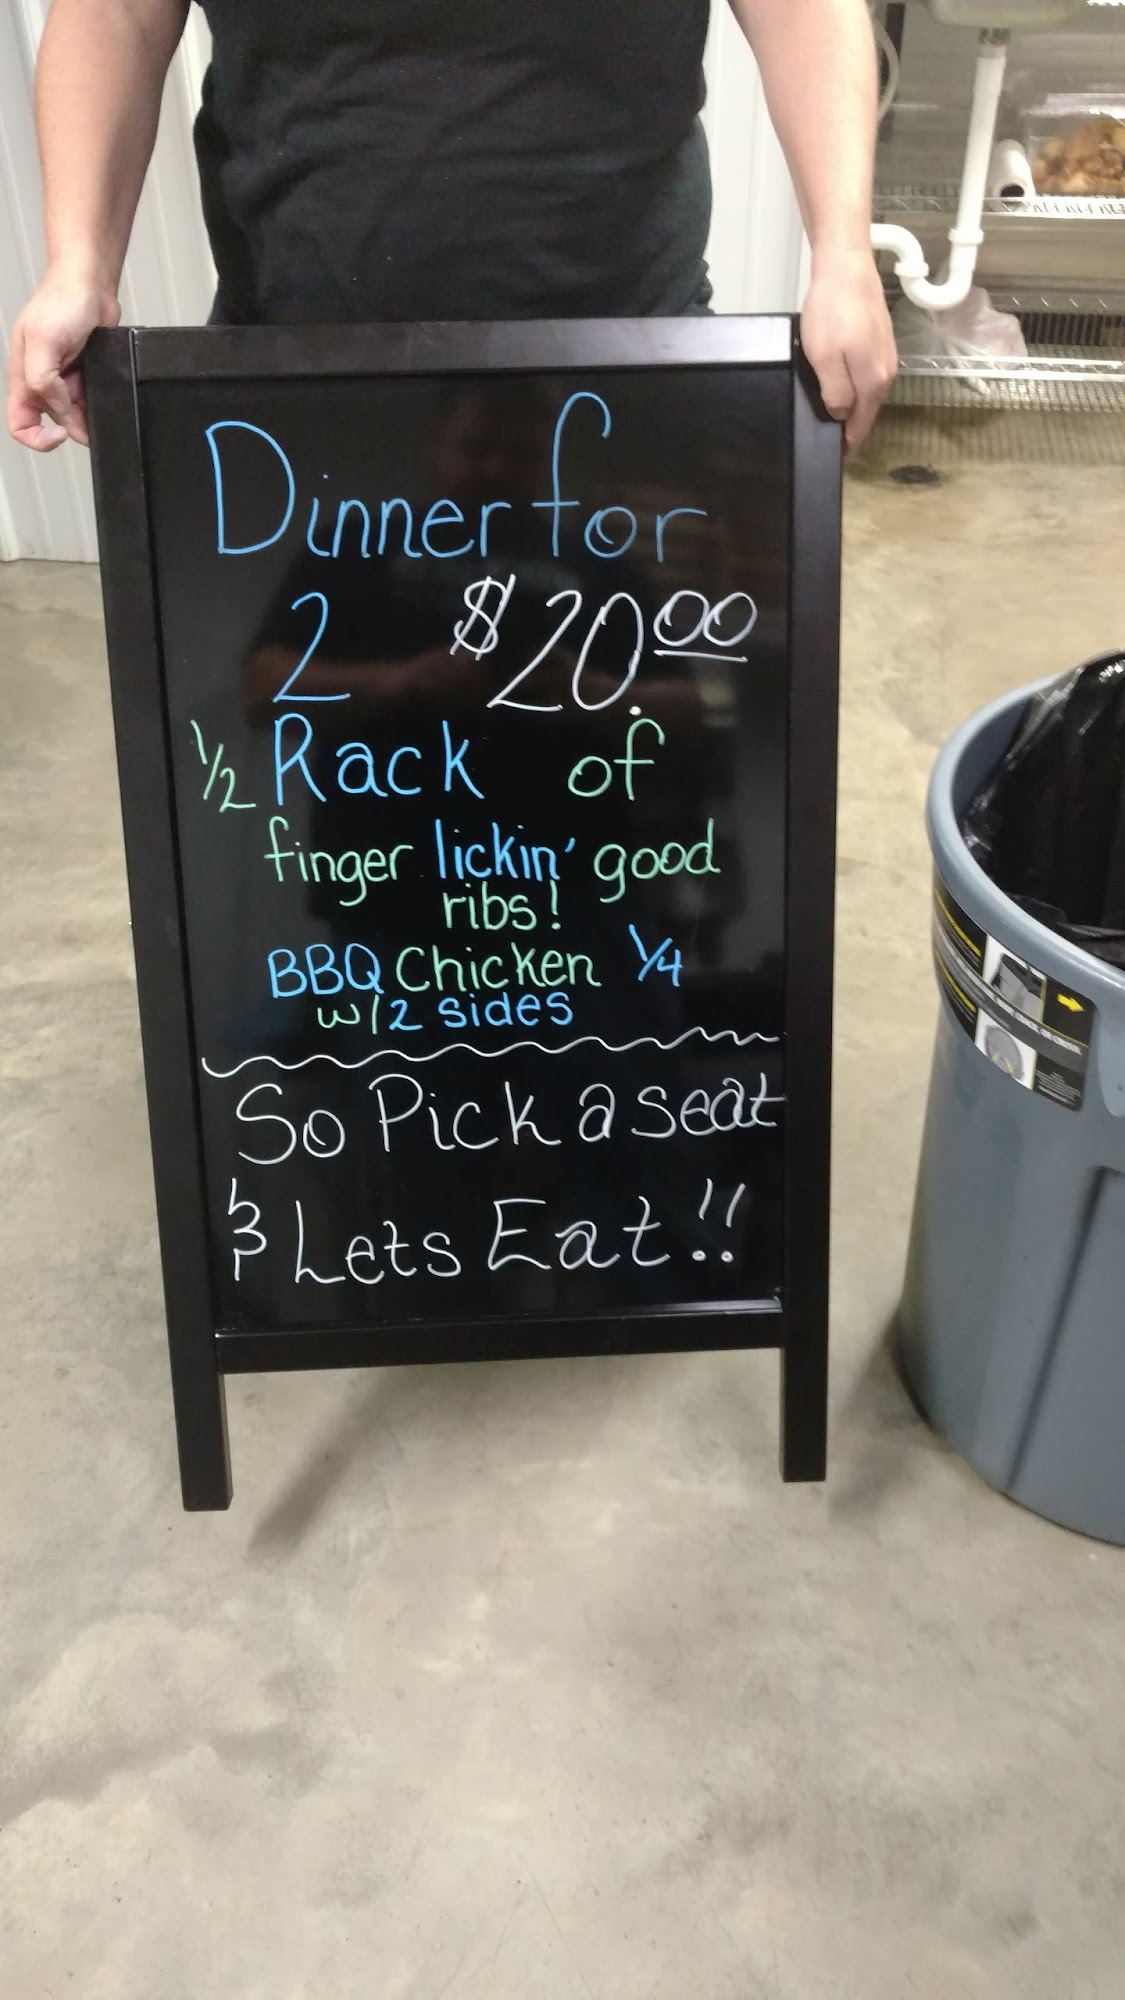 Dinner for
2 $20.00
1/2 Rack of
finger lickin' good
ribs!
BBQ Chicken 1/4
w/2 sides
So Pick a seat
& Lets Eat!!